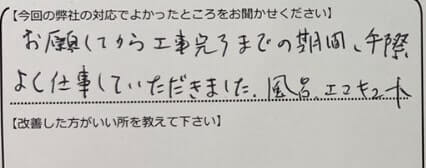 【今回の弊社の対応でよかったところをお聞かせください】
お願してから工事完了までの期間、手際
よく仕事していただきました、風呂、エコキュート
【改善した方がいい所を教えて下さい】